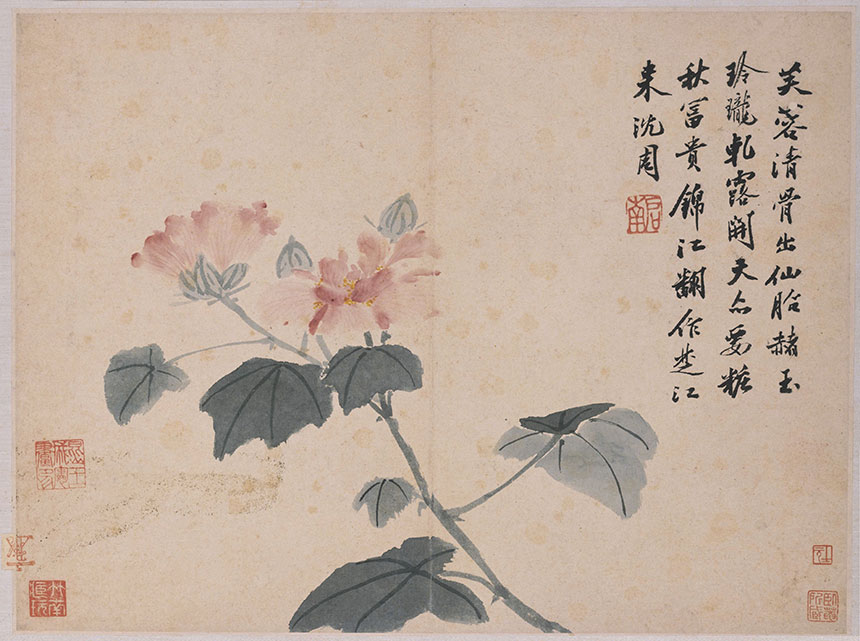 芙蓉清骨出仙胎赭玉
玲瓏軋露開天亦要粧
秋冨貴錦江翻作楚江
来沈周
启南